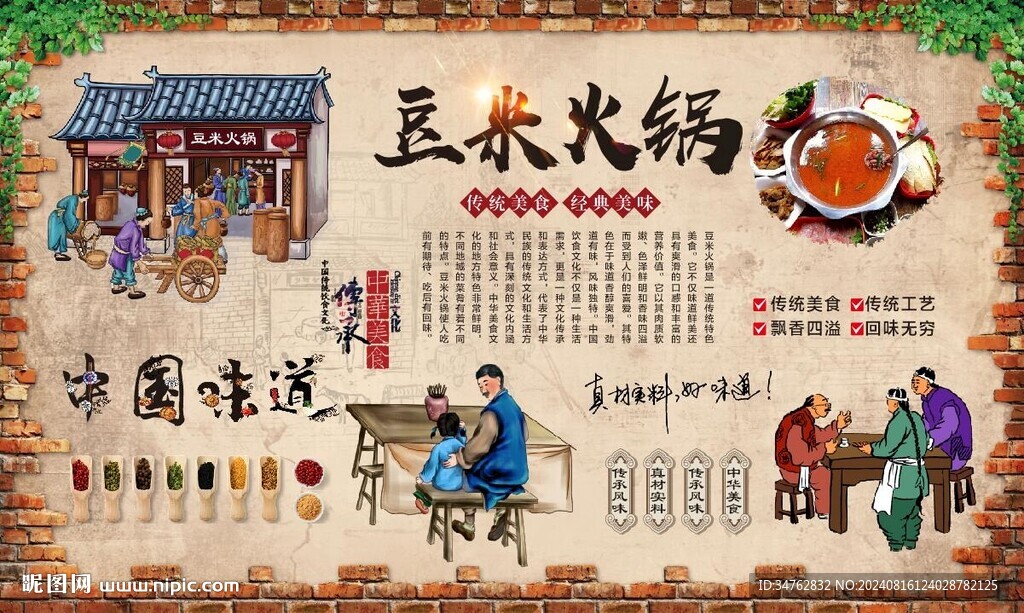 豆米火锅
豆米火锅
传统美食 经典美味
豆米火锅是一道传统特色
美食。它不仅味道鲜美还
具有爽滑的口感和丰富的
营养价值。它以其肉质软
嫩、色泽鲜明和香味四溢
而受到人们的喜爱。其特
色在于味道香醇爽滑，劲
道有味，风味独特。中国
饮食文化不仅是一种生活
需求，更是一种文化传承
和表达方式，代表了中华
民族的传统文化和生活方
式，具有深刻的文化内涵
和社会意义。中华美食文
化的地方特色非常鲜明，
不同地域的菜肴有着不同
的特点。豆米火锅使人吃
前有期待、吃后有回味。
中华美食
文化
傳承
中国传统饮食文化
传统美食 传统工艺
飘香四溢 回味无穷
中国味道
真材实料,好味道!
传承风味
真材实料
传承风味
中华美食
昵图网 www.nipic.com
ID:34762832 NO:20240816124028782125